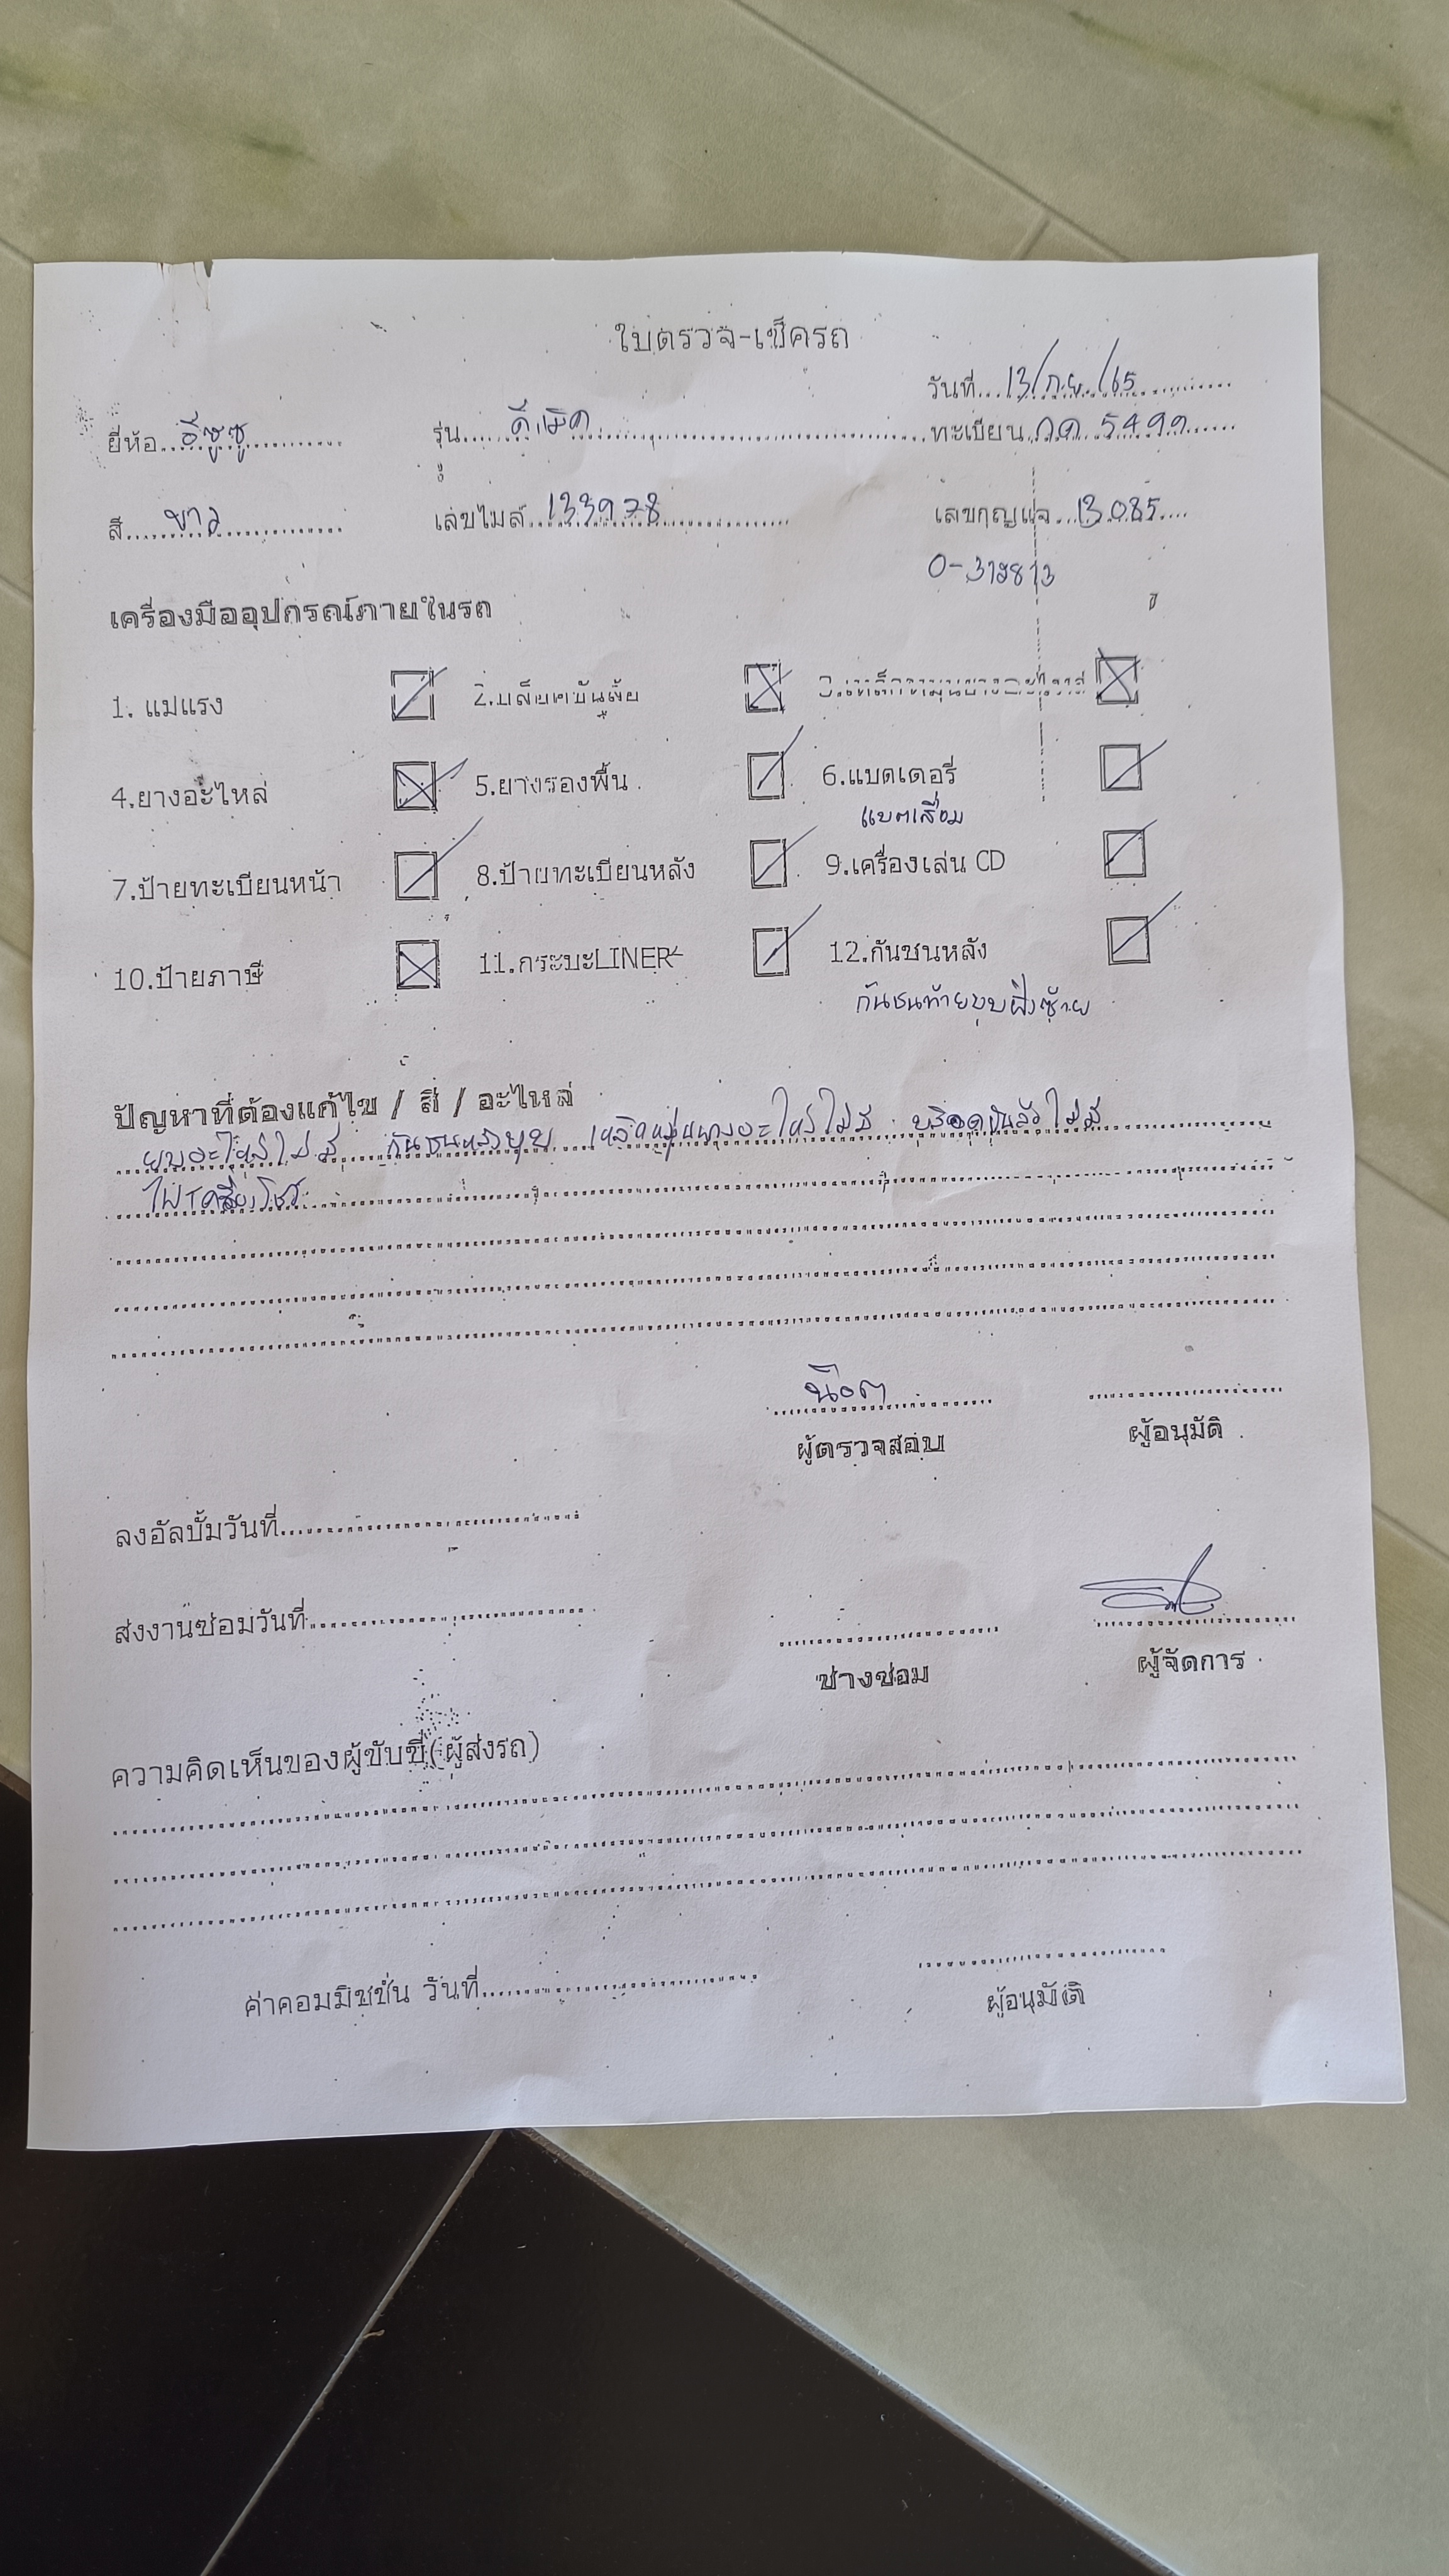 ใบตรวจ-เช็ครถ
วันที่ 13/ก.ย./65
ยี่ห้อ อีซูซุ รุ่น ดีแม็ค ทะเบียน 5499
สี ขาว เลขไมล์ 133978 เลขกุญแจ 13085
เครื่องมืออุปกรณ์ภายในรถ
1. แม่แรง 2.บล็อคขันล้อ
4.ยางอะไหล่ 5.ยางรองพื้น 6.แบตเตอรี่
แบตเสื่อม
7.ป้ายทะเบียนหน้า 8.ป้ายทะเบียนหลัง 9.เครื่องเล่น CD
10.ป้ายภาษี 11.กระบะLINER 12.กันชนหลัง
กันชนท้ายยุบฝั่งซ้าย
ปัญหาที่ต้องแก้ไข / สี / อะไหล่
ยางอะไหล่ไม่มี กันชนหลังยุบ เหล็กหมุนยางอะไหล่ไม่มี บล็อคขันล้อไม่มี
ไฟเครื่องโชว์
น๊อต
ผู้ตรวจสอบ ผู้อนุมัติ
ลงอัลบั้มวันที่
ส่งงานซ่อมวันที่
ช่างซ่อม ผู้จัดการ
ความคิดเห็นของผู้ขับขี่(ผู้ส่งรถ)
ค่าคอมมิชชั่น วันที่
ผู้อนุมัติ